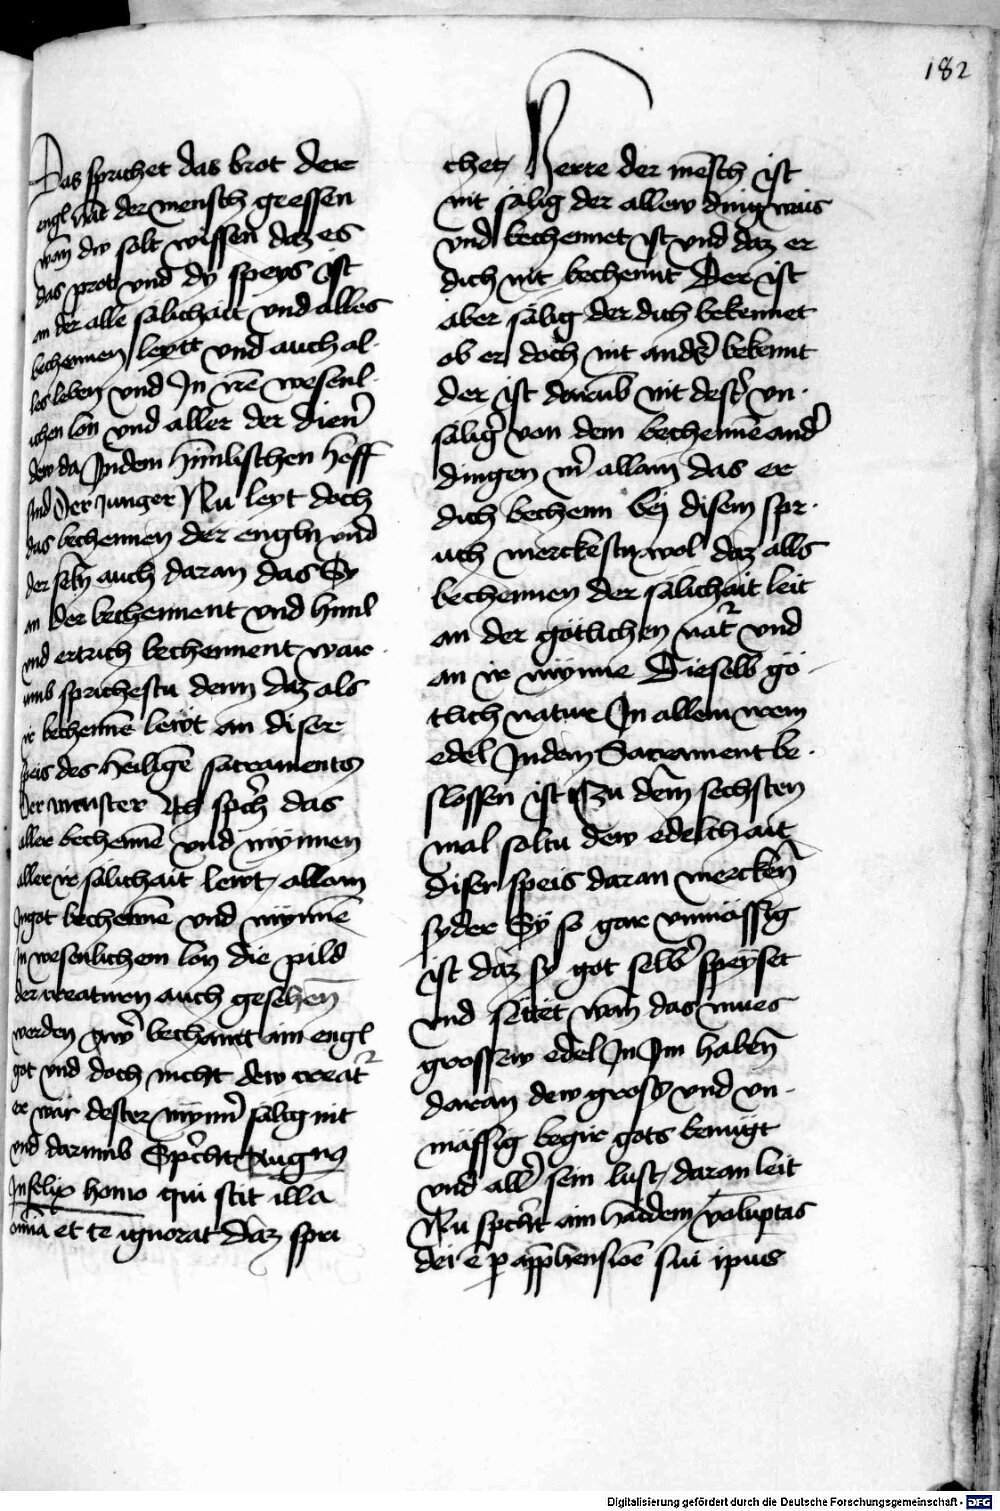 182
Das sprichet das brot der
engl hat der mensch gressen
wan dw solt wissen daz es
das prot und dy speys ist
an der alle sälichait und alles
bechennen leytt und auch al-
les leben und In irē wesenl-
ichen lon und aller der dien̄
dew da Indem himlischen hoff
sind Der Junger Nu leyt doch
das bechennen der engln und
der seln auch daran das Sy
an der bechennent und himl
und ertrich bechennent war-
umb sprichestu denn daz als
ir bechennē leyt an diser
speis des heiligē sacraments
Der maister Ich sprich das
aller bechennē und mynnen
aller ir sälichait leyt allain
In got bechennē und mynnē
In wesenlichem lon die pild
der creaturn auch gesehen
werden bechantt ain engl
got und doch nicht dew creatr
er wär dester mynner sälig nit
und darumb Spricht Augus
Infelix homo qui scit illa
omīa et te ignorat daz spri
chet Herre der mēsch ist
nit sälig der allew ding wais
und bechennet ist und daz er
dich nit bechennt Der ist
aber sälig der dich bekennet
ob er doch nit anders bekennt
der ist darumb nit dester un-
säliger von dem bechennē ander
dingen nur allain das er
dich bechenn bej disem spr-
uch merckestu wol daz alls
bechennen der sälichait leit
an der götlichen natr und
an ir mynne Dieselb gö-
tlich natur In allem irem
edel In dem Sacrament be-
slossen ist Zu dem sechsten
mal soltu dew edelchait
diser speis daran mercken
syder Sy so gar unmässig
ist daz sy got selber speyset
und settet wan das mues
grossew edel In Im haben
daran dew gros und un-
mässig begir gots benügt
und aller sein lust daran leit
Nu spricht ain haidem voluptas
dei ē p app̄hensionē sui ipius
Digitalisierung gefördert durch die Deutsche Forschungsgemeinschaft - DFG